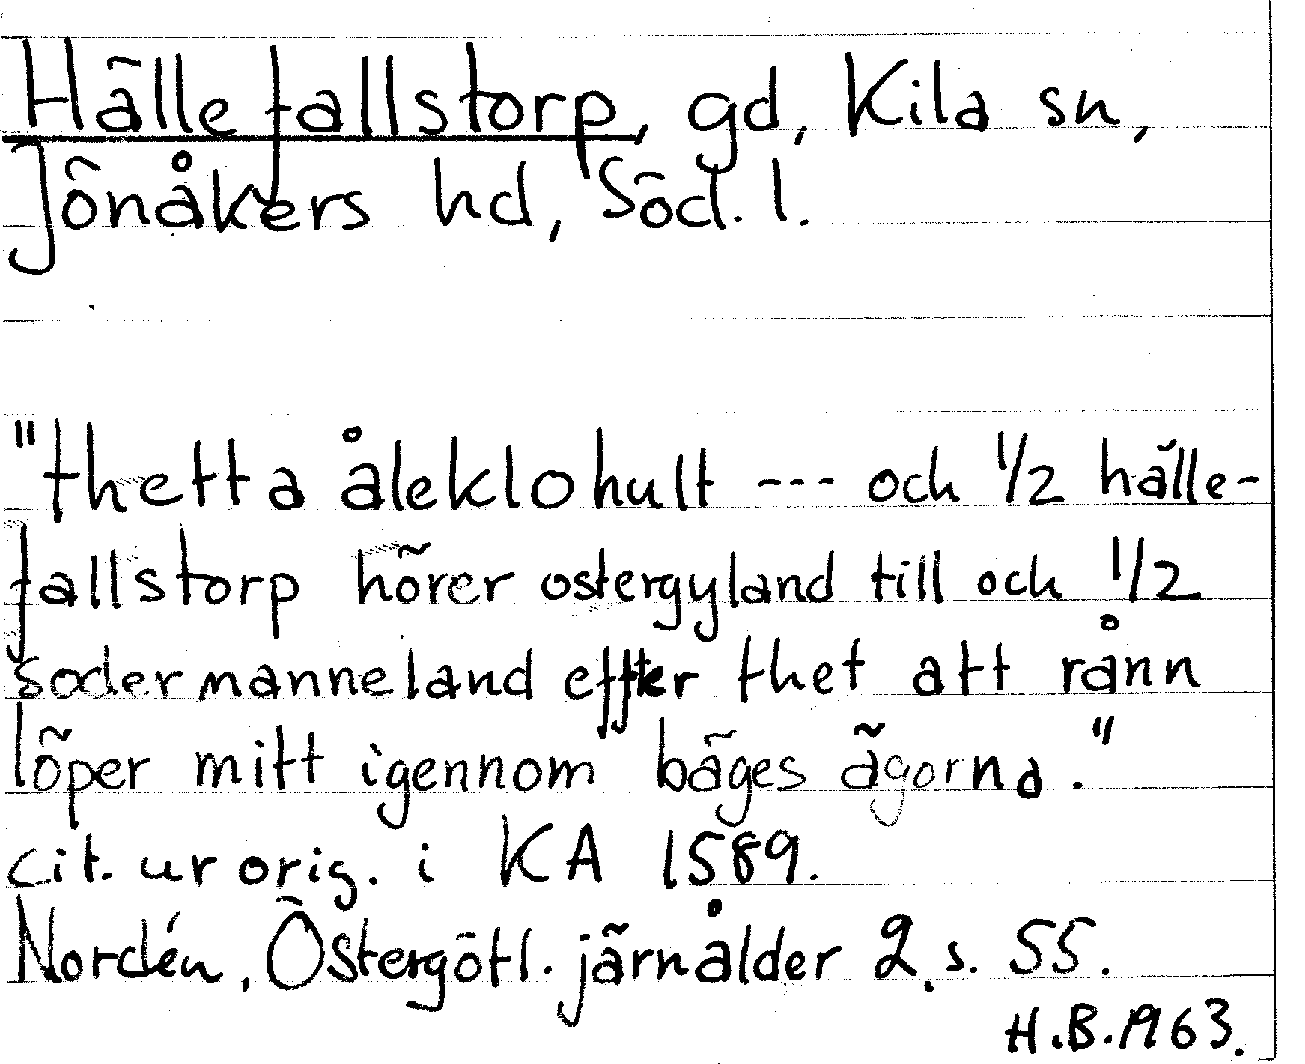 Hällefallstorp, gd, Kila sn,
Jönåkers hd, Söd. l.
"thetta åleklohult --- och 1/2 hälle-
fallstorp hörer ostergyland till och 1/2
södermanneland effter thet att rånn
löper mitt igennom bäges ägorna."
cit. ur orig. i KA 1589.
Nordén, Östergötl. järnålder 2, s. 55.
H.B. 1963.